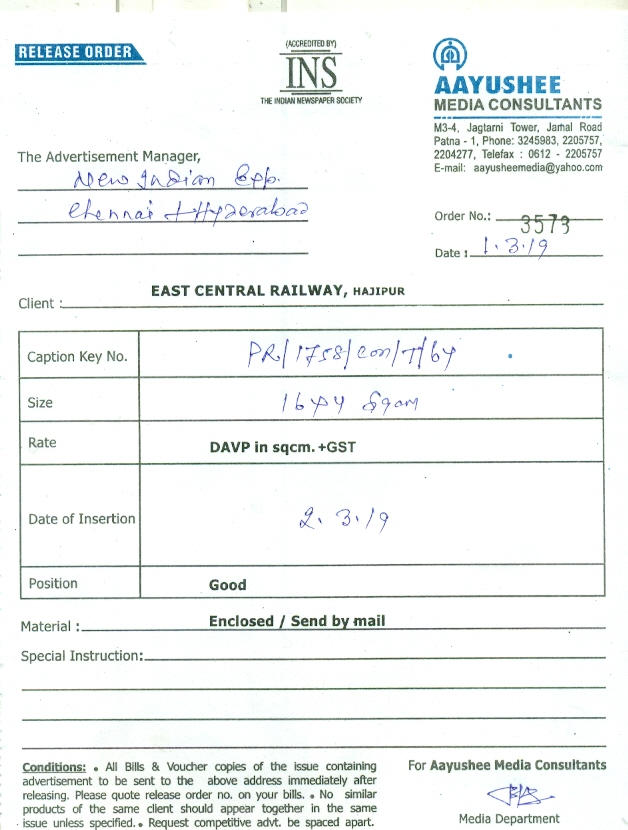 RELEASE ORDER
(ACCREDITED BY)
INS
THE INDIAN NEWSPAPER SOCIETY
AAYUSHEE
MEDIA CONSULTANTS
M3-4, Jagtarni Tower, Jamal Road
Patna - 1, Phone: 3245983, 2205757,
2204277, Telefax : 0612 - 2205757
E-mail: aayusheemedia@yahoo.com
The Advertisement Manager,
New Indian Exp.
Chennai + Hyderabad
Order No.: 3573
Date : 1.3.19
Client : EAST CENTRAL RAILWAY, HAJIPUR
Caption Key No. PR/1758/con/T/64
Size 16x4 Sqcm
Rate DAVP in sqcm. +GST
Date of Insertion 2.3.19
Position Good
Material : Enclosed / Send by mail
Special Instruction:
Conditions: • All Bills & Voucher copies of the issue containing
advertisement to be sent to the above address immediately after
releasing. Please quote release order no. on your bills. • No similar
products of the same client should appear together in the same
issue unless specified. • Request competitive advt. be spaced apart.
For Aayushee Media Consultants
Media Department